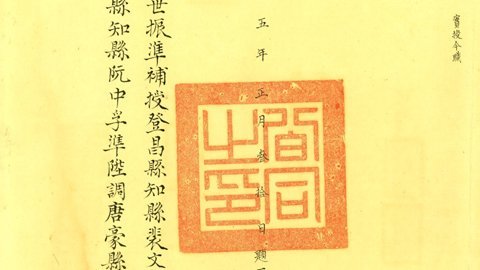 實授今職
五年正月叁拾日題
同之印
世振準補授登昌縣知縣裴文
縣知縣阮中孚準陞調唐豪縣